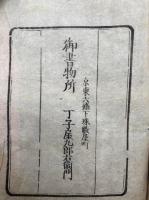 京東六條下珠數屋町
御書物所
丁子屋九郎右衞門